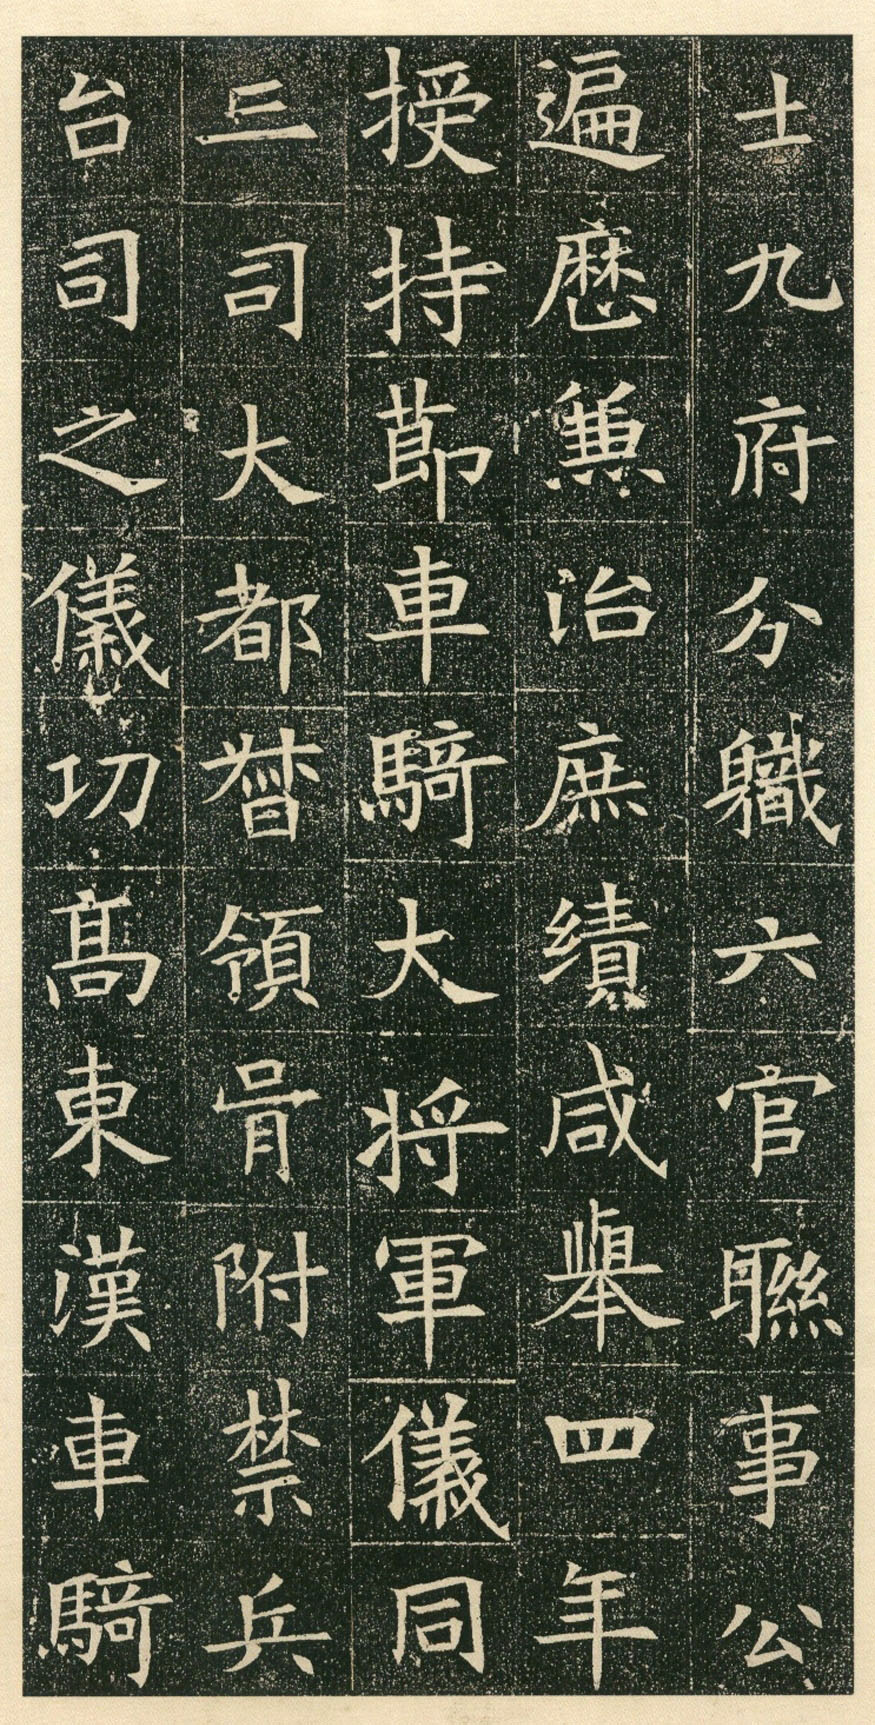 士九府分軄六官聮事公
遍歷兼治庶績咸舉四年
授持莭車騎大将軍儀同
三司大都督領胥附禁兵
台司之儀功髙東漢車騎